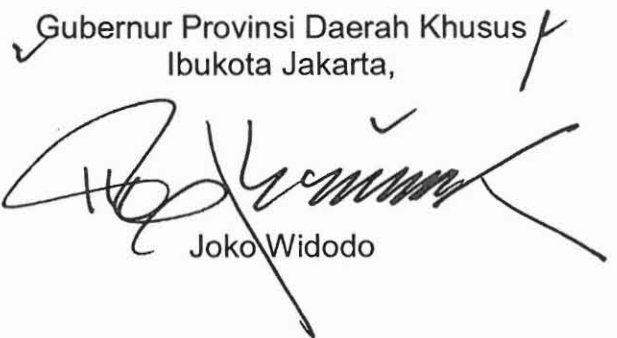 Gubernur Provinsi Daerah Khusus
Ibukota Jakarta,
Joko Widodo